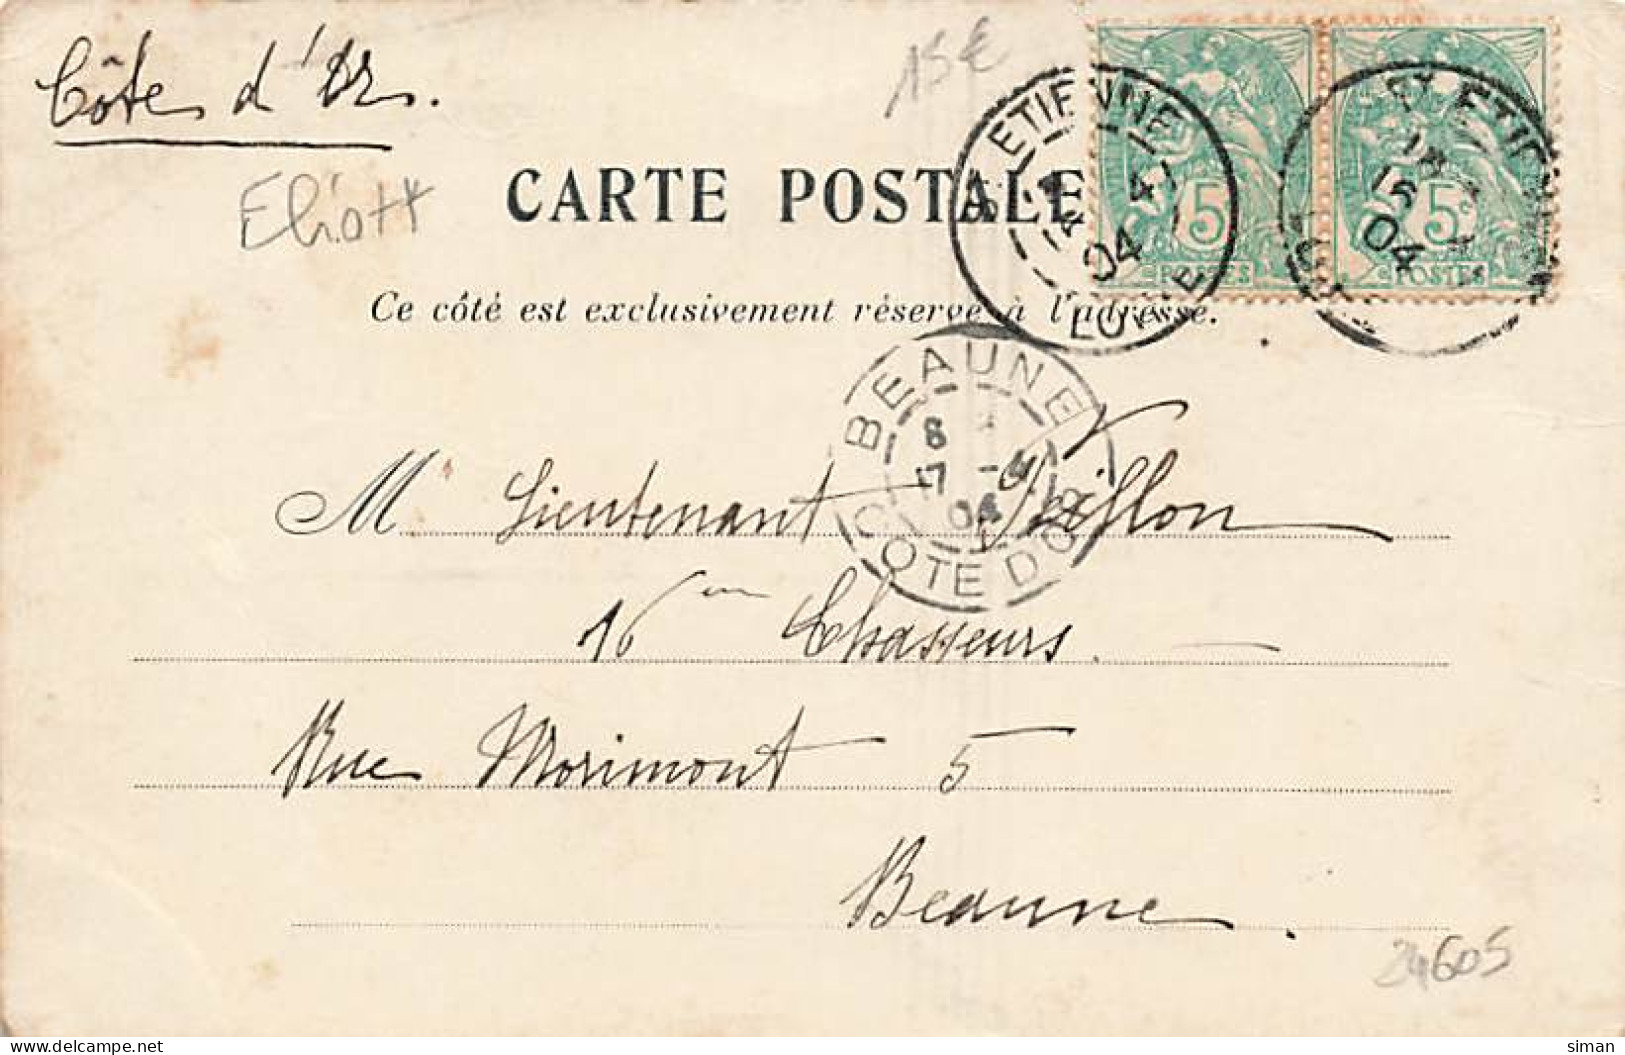 Côte d'Or.
15€
Eliott
CARTE POSTALE
Ce côté est exclusivement réservé à l'adresse.
ETIENNE
4
04
LOIRE
ST ETIENNE
15
04
5
POSTES
5c
POSTES
BEAUNE
8
17 -4
04
COTE D'OR
M. Lieutenant
16em Chasseurs.
Rue Morimont 5
Beaune.
24605
delcampe.net
siman